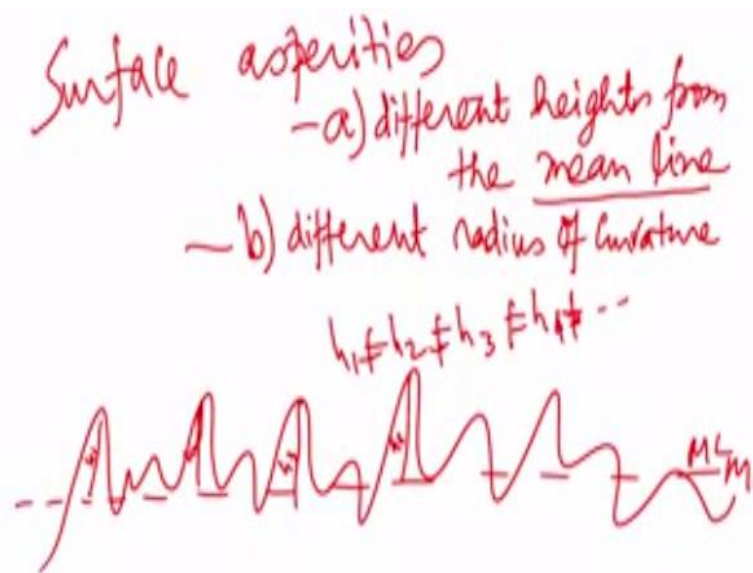 Surface asperities
- a) different heights from
the mean line
- b) different radius of curvature
h1 ≠ h2 ≠ h3 ≠ h4 ≠ --
h1 h3 h4 ML